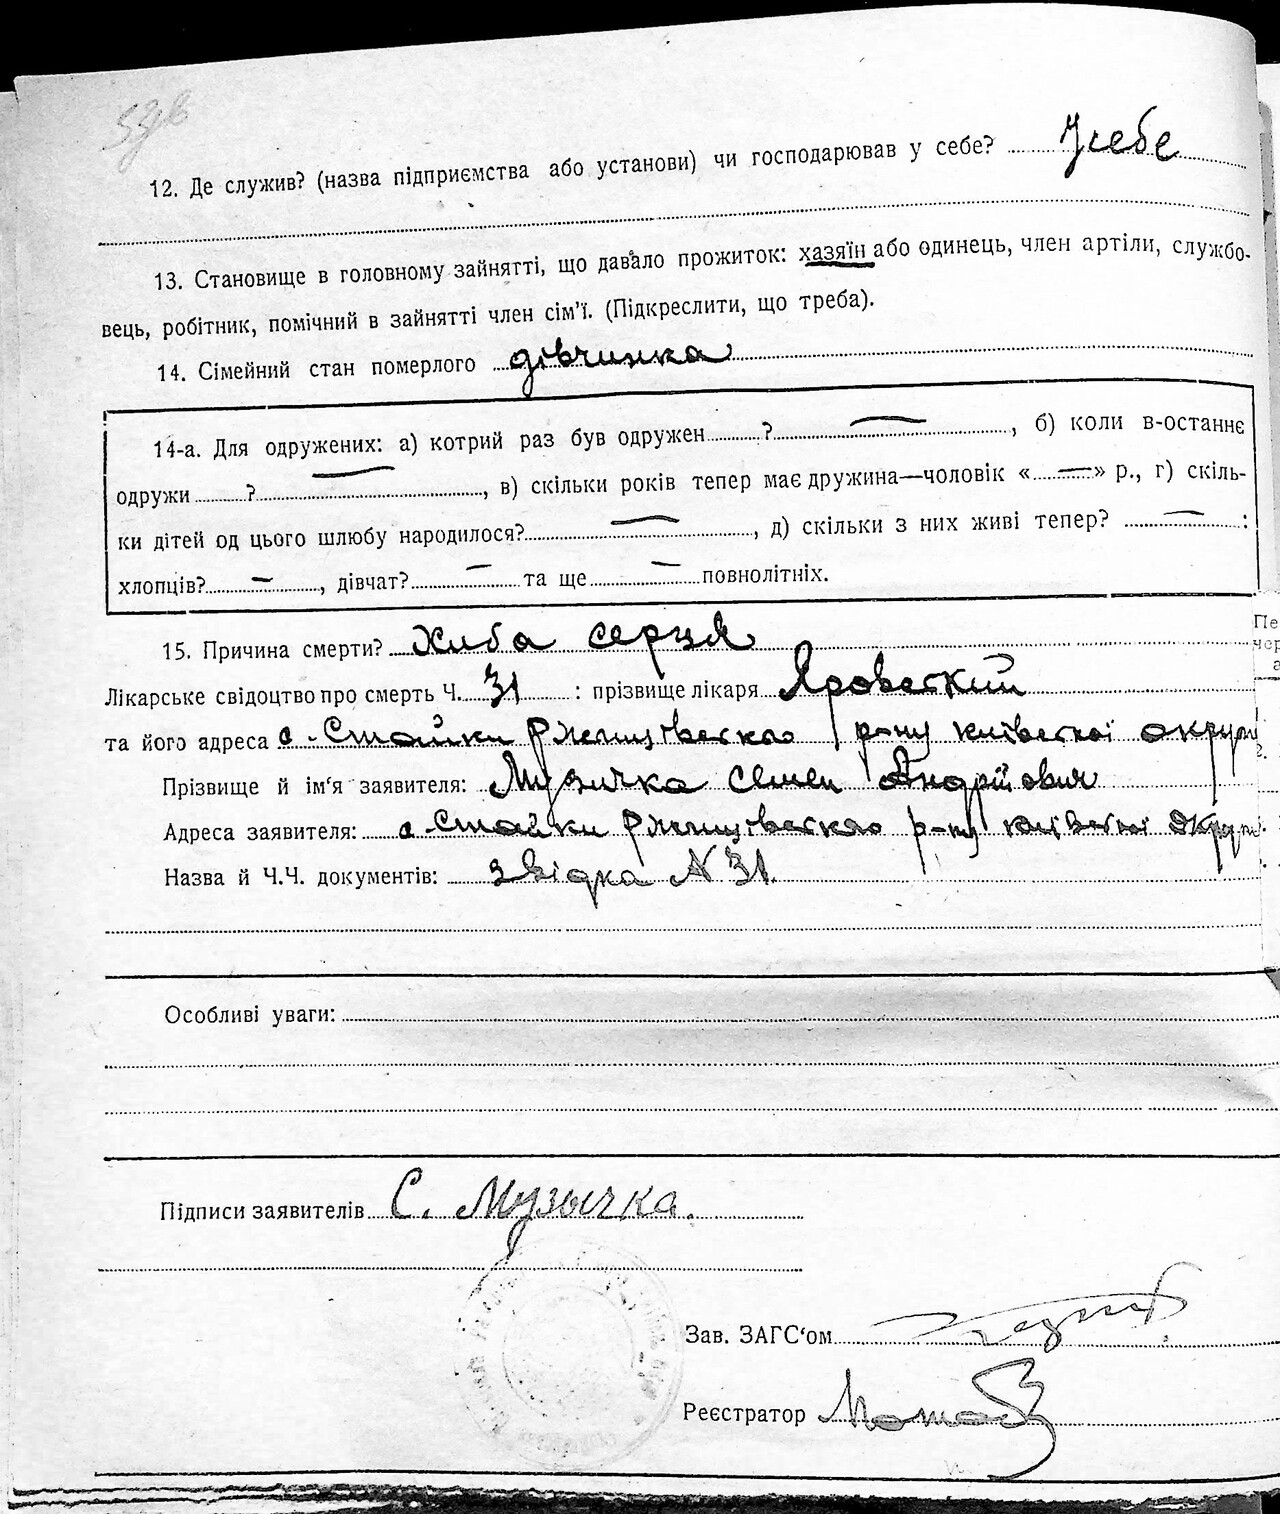 12. Де служив? (назва підприємства або установи) чи господарював у себе? У себе
13. Становище в головному зайнятті, що давало прожиток: хазяїн або одинець, член артіли, службо-
вець, робітник, помічний в зайнятті член сім'ї. (Підкреслити, що треба).
14. Сімейний стан померлого дівчинка
14-а. Для одружених: а) котрий раз був одружен ? — , б) коли в-останнє
одружи ? — , в) скільки років тепер має дружина—чоловік « — » р., г) скіль-
ки дітей од цього шлюбу народилося? — , д) скільки з них живі тепер? — :
хлопців? — , дівчат? — та ще — повнолітніх.
15. Причина смерти? Хиба серця
Лікарське свідоцтво про смерть Ч. 31 : прізвище лікаря Яровский
та його адреса с. Стайки Ржищівского р-ну київської округи
Прізвище й ім'я заявителя: Музичка Семен Андрійович
Адреса заявителя: с. Стайки Ржищівского р-ну київської округи
Назва й Ч.Ч. документів: звідка N 31.
Особливі уваги:
Підписи заявителів С. Музычка.
Зав. ЗАГС'ом
Реєстратор